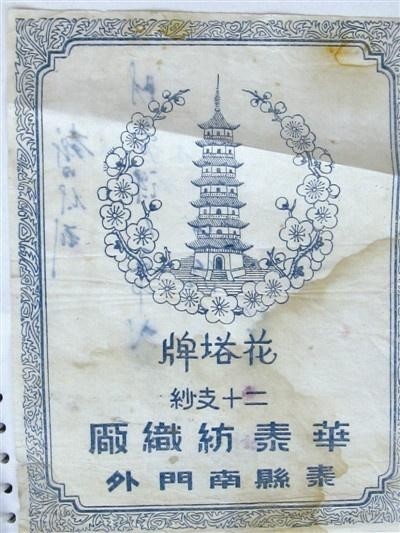 花塔牌
二十支紗
華泰紡織廠
泰縣南門外